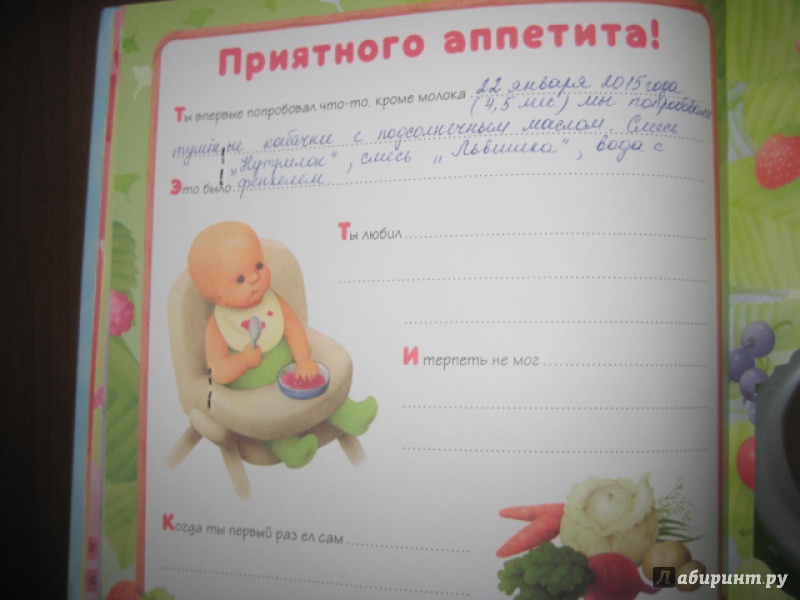 Приятного аппетита!
Ты впервые попробовал что-то, кроме молока 22 января 2015 года
(4,5 мес) мы попробовали
тушённые кабачки с подсолнечным маслом. Смесь
"Нутрилок", смесь "Львишка", вода с
Это было фенхелем
Ты любил
И терпеть не мог
Когда ты первый раз ел сам
Лабиринт.ру